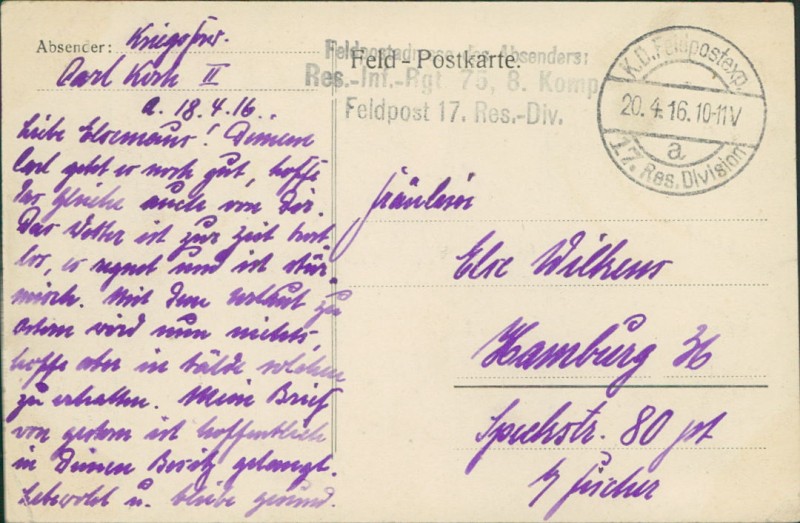 Absender: Kriegsfrw.
Carl Koch II
Feld-Postkarte.
Feldpostadresse des Absenders:
Res.-Inf.-Rgt 75, 8. Komp
Feldpost 17. Res.-Div.
K.D. Feldpostexp.
20.4.16.10-11V
a
17. Res. Division
a. 18.4.16.
Liebe Elsemaus! Deinem
Carl geht es noch gut, hoffe
das Gleiche auch von Dir.
Das Wetter ist zur Zeit trost
los, es regnet und ist stür-
misch. Mit dem Urlaub zu
Ostern wird nun nichts,
hoffe aber in bälde solchen
zu erhalten. Mein Brief
von gestern ist hoffentlich
in Deinen Besitz gelangt.
Lebewohl u. bleibe gesund.
Fräulein
Else Wilkens
Hamburg 36
Speckstr. 80 pt
b/ Fischer